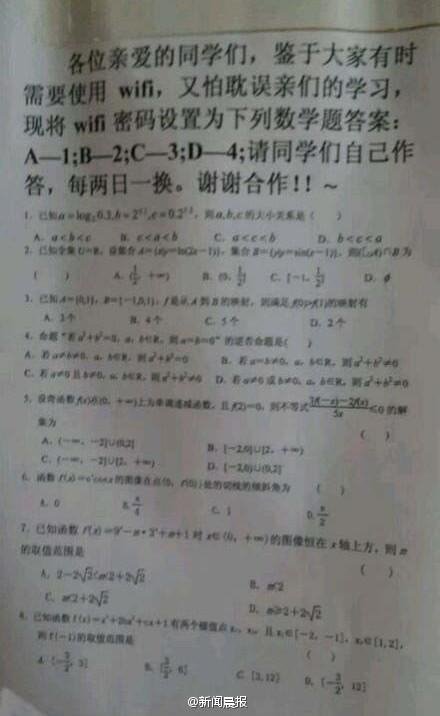 各位亲爱的同学们，鉴于大家有时
需要使用 wifi，又怕耽误亲们的学习，
现将 wifi 密码设置为下列数学题答案：
A—1;B—2;C—3;D—4;请同学们自己作
答，每两日一换。谢谢合作！！～
1. 已知a=log₂0.3,b= ,c= ，则a,b,c的大小关系是（ ）
A. a<b<c B. c<a<b C. a<c<b D. b<c<a
2. 已知全集U=R，设集合A={x|y=ln(2x-1)}，集合B={y|y=sin(x-1)}，则 ∩B为
（ ） A. B. (0, 1/2] C. [-1, 1/2] D. ϕ
3. 已知A={0,1}，B={-1,0,1}，f是从A到B的映射，则满足f(0)>f(1)的映射有
A. 3个 B. 4个 C. 5个 D. 2个
4. 命题“若a²+b²=0，a，b∈R，则a=b=0”的逆否命题是（ ）
A. 若a≠b≠0，a，b∈R，则a²+b²=0 B. 若a=b≠0，a，b∈R，则a²+b²≠0
C. 若a≠0且b≠0，a，b∈R，则a²+b²≠0 D. 若a≠0或b≠0，a，b∈R，则a²+b²≠0
5. 设奇函数f(x)在(0，+∞)上为单调递减函数，且f(2)=0，则不等式 (3f(-x)-2f(x))/5x ≤0 的解
集为 （ ）
A. (-∞，-2]∪(0,2] B. [-2,0]∪[2，+∞)
C. (-∞，-2]∪[2，+∞) D. [-2,0)∪(0,2]
6. 函数 的图像在点(0，f(0))处的切线的倾斜角为 （ ）
A. 0 B. π/4 C. 1 D. π/2
7. 已知函数 f(x)=9ˣ-m·3ˣ+m+1 对 x∈(0，+∞)的图像恒在x轴上方，则m
的取值范围是 （ ）
A. 2-2√2<m<2+2√2 B. m<2
C. m<2+2√2 D. m≥2+2√2
8. 已知函数 有两个极值点x₁，x₂，且x₁∈[-2，-1]，x₂∈[1,2]，
则f(-1)的取值范围是 （ ）
A. [-3/2，3] B. [3/2，6] C. [3,12] D. [-3/2，12]
@新闻晨报